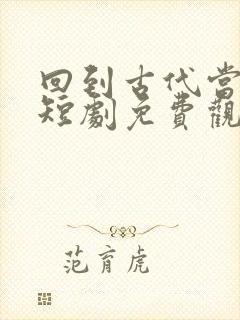 回到古代當
短劇免費觀
范育虎